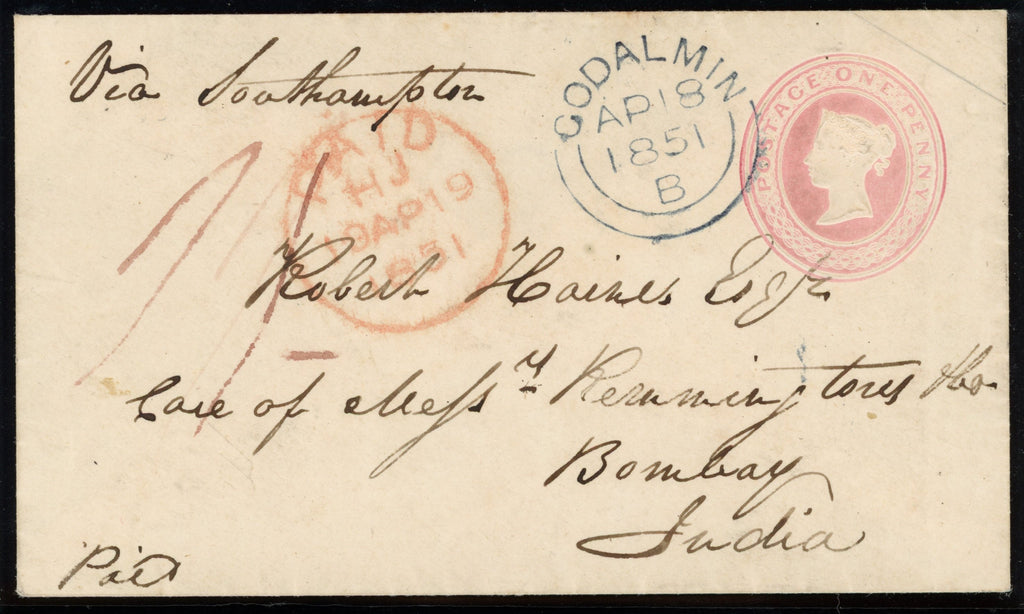 Via Southampton
POSTAGE ONE PENNY
GODALMIN
AP 18
1851
B
PAID
HJ
AP 19
1851
1/-
Robert Haines Esqre
Care of Messrs Remmingtons & Co
Bombay
India
Paid